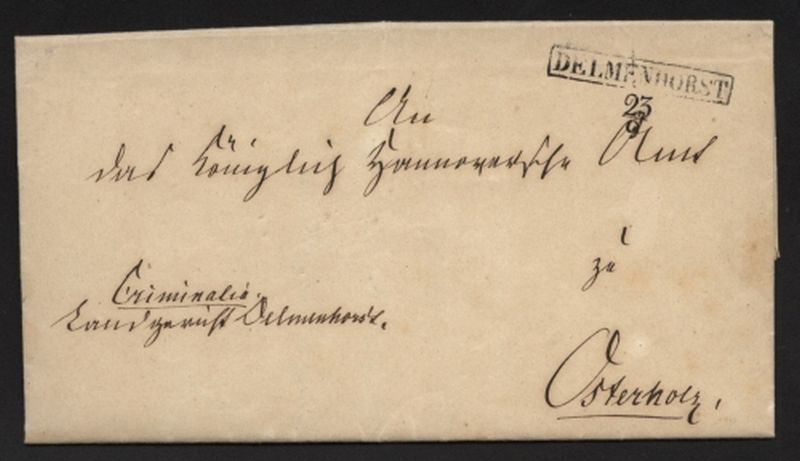 DELMENHORST
23
9
An
das Königlich Hannoversche Amt
zu
Criminalia.
Landgericht Delmenhorst.
Osterholz,